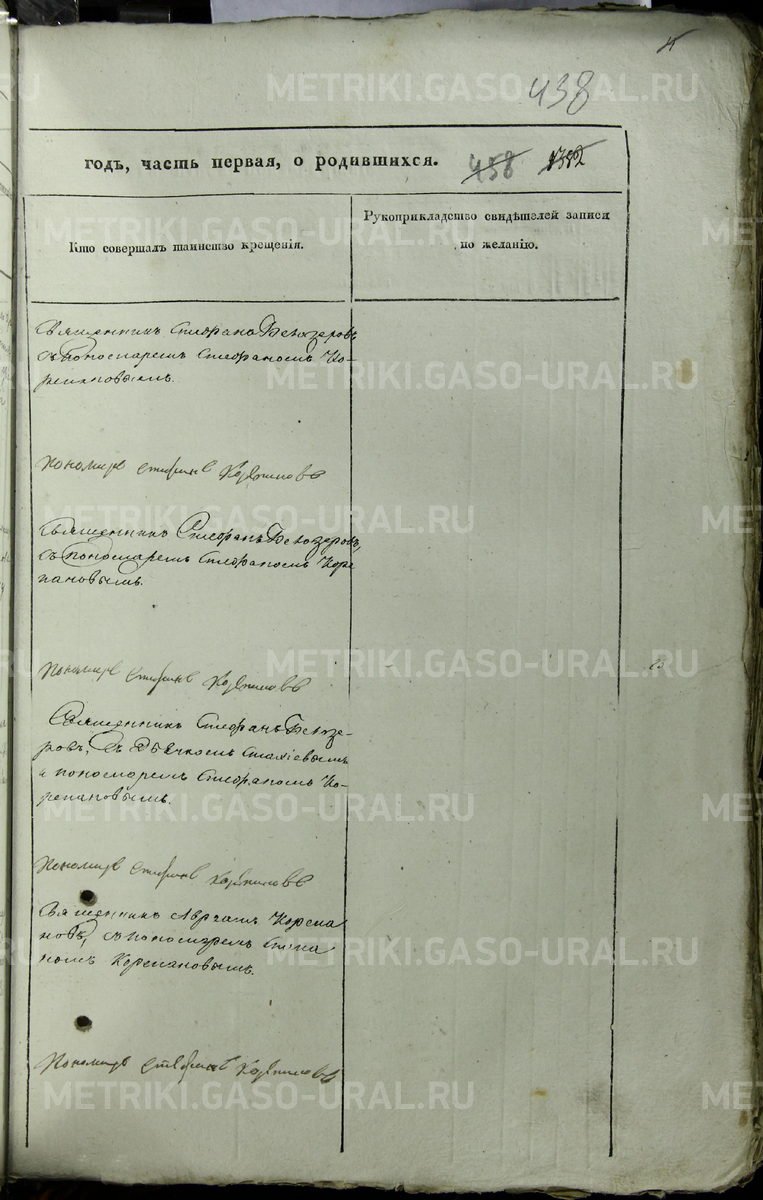 438
годъ, часть первая, о родившихся. 458 1382
Кто совершалъ таинство крещенія.
Рукоприкладство свидѣтелей записи
по желанію.
Священникъ Стефанъ Белозеровъ
съ пономаремъ Стефаномъ Ко-
репановымъ.
Пономарь Стефанъ Корепановъ
Священникъ Стефанъ Белозеровъ,
съ пономаремъ Стефаномъ Коре
пановымъ.
Пономарь Стефанъ Корепановъ
Священникъ Стефанъ Белозе-
ровъ, съ дьячкомъ Стахіевымъ
и пономаремъ Стефаномъ Ко-
репановымъ.
Пономарь Стефанъ Корепановъ
Священникъ Авраамъ Корепа
новъ, съ пономаремъ Степа
номъ Корепановымъ.
Пономарь Стефанъ Корепановъ
METRIKI.GASO-URAL.RU